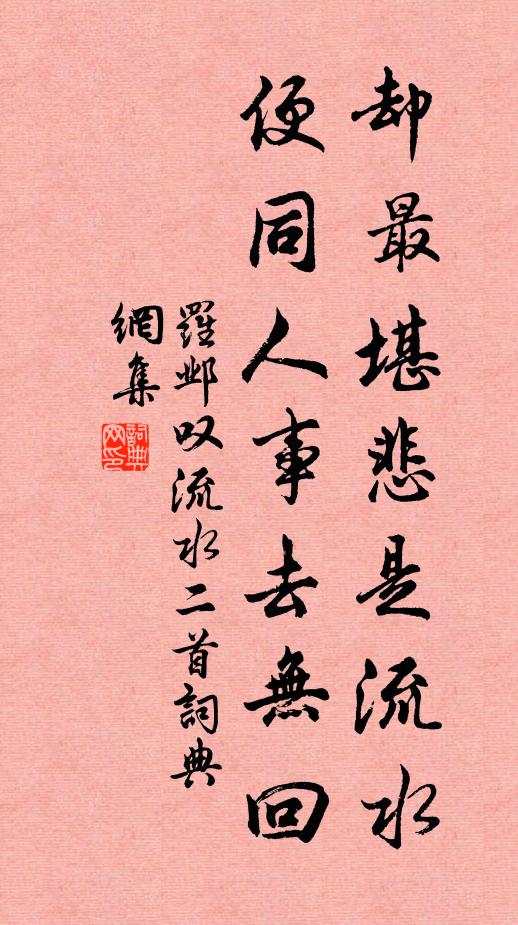 却最堪悲是流水
便同人事去無回
羅邺叹流水二首詞典
網集
詞典网印